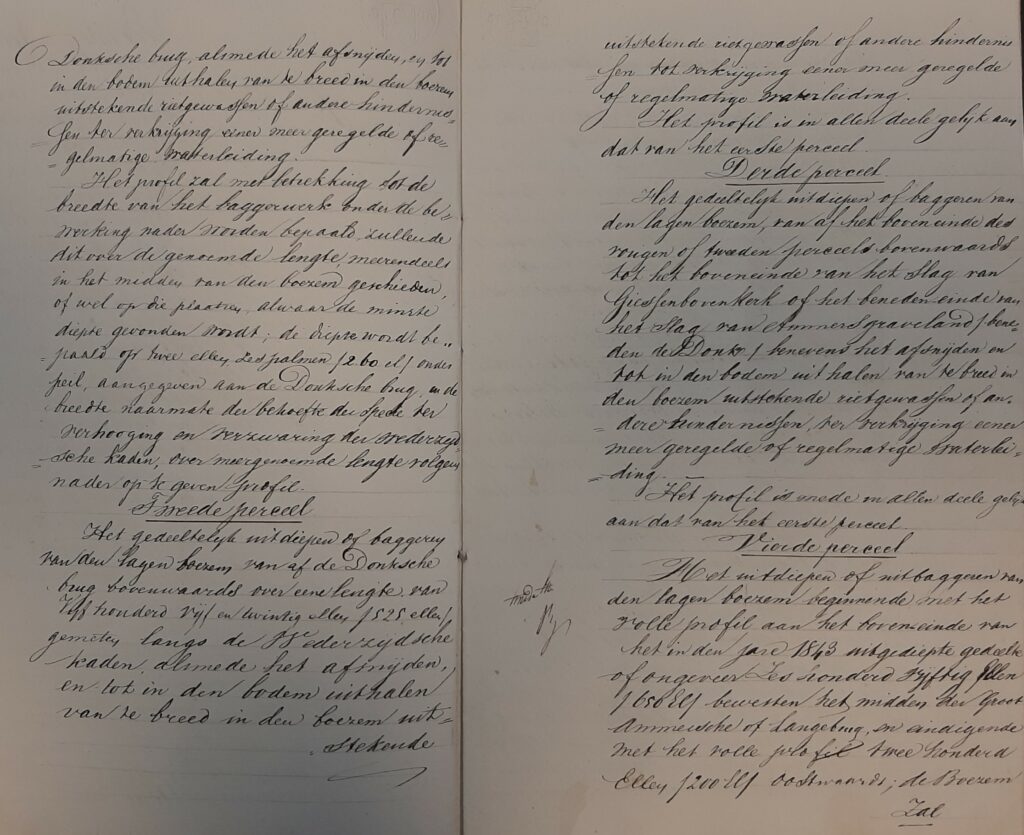 Donksche brug, alsmede het afsnijden, en tot
in den bodem uithalen van te breed in den boezem
uitstekende rietgewassen of andere hindernis-
sen ter verkrijging eener meer geregelde of re-
gelmatige waterleiding.
Het profil zal met betrekking tot de
breedte van het baggerwerk onder de be-
werking nader worden bepaald, zullende
dit over de genoemde lengte meerendeels
in het midden van den boezem geschieden,
of wel op die plaatsen, alwaar de minste
diepte gevonden wordt; de diepte wordt be-
paald op twee ellen zes palmen /2.60 el/ onder
peil, aangegeven aan de Donksche brug, en de
breedte naarmate der behoefte der specie ter
verhooging en verzwaring der wederzyd-
sche kaden, over meergenoemde lengte volgens
nader op te geven profil.
Tweede perceel
Het gedeeltelyk uitdiepen of baggeren
van den lagen boezem van af de Donksche
brug bovenwaards over eene lengte van
Vijf honderd vijf en twintig ellen /525 ellen/
gemeten langs de Wederzydsche
kaden, alsmede het afsnijden,
en tot in den bodem uithalen
van te breed in den boezem uit-
stekende
uitstekende rietgewassen of andere hindernis
sen tot verkrijging eener meer geregelde
of regelmatige waterleiding.
Het profil is in allen deele gelyk aan
dat van het eerste perceel.
Derde perceel
Het gedeeltelyk uitdiepen of baggeren van
den lagen boezem, van af het boveneinde des
vorigen of tweeden perceels bovenwaards
tot het boveneinde van het Slag van
Giessenbovenkerk of het beneden einde van
het Slag van Ammersgraveland / bene-
den de Donk / benevens het afsnijden en
tot in den bodem uithalen van te breed in
den boezem uitstekende rietgewassen of an-
dere hindernissen, ter verkrijging eener
meer geregelde of regelmatige waterlei-
ding.
Het profil is mede in allen deele gelyk
aan dat van het eerste perceel.
Vierde perceel
Het uitdiepen of uitbaggeren van
den lagen boezem beginnende met het
volle profil, aan het boveneinde van
het in den jare 1843 uitgediepte gedeelte
of ongeveer Zes honderd vyftig Ellen
/650 El/ bewesten het midden der Groot
Ammersche of Langebrug, en eindigende
met het volle profil twee honderd
Ellen /200 El/ oostwaards; de Boezem
Zal